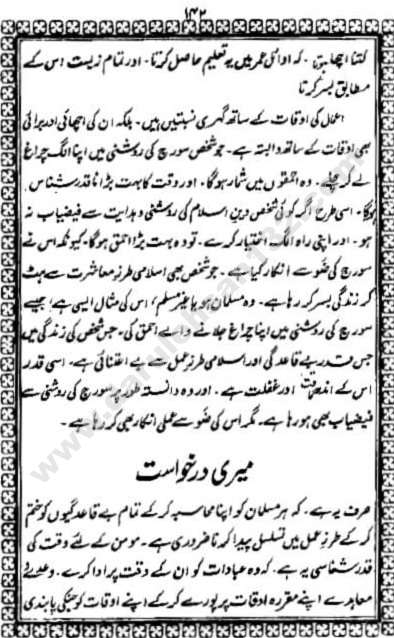 ۱۴۲
کتنا اچھا ہوتا۔ کہ اوائل عمر میں یہ تعلیم حاصل کرتا۔ اور تمام زیست اس کے
مطابق بسر کرتا
اعمال کی اوقات کے ساتھ گہری نسبتیں ہیں۔ بلکہ ان کی اچھائی اور برائی
بھی اوقات کے ساتھ وابستہ ہے۔ جو شخص سورج کی روشنی میں اپنا الگ چراغ
لے کر چلے۔ وہ احمقوں میں شمار ہوگا۔ اور وقت کا بہت بڑا ناقدر شناس
ہوگا۔ اسی طرح اگر کوئی شخص دینِ اسلام کی روشنی و ہدایت سے فیضیاب نہ
ہو۔ اور اپنی راہ الگ اختیار کرے۔ تو وہ بہت بڑا احمق ہوگا۔ کیونکہ اس نے
سورج کی ضَو سے انکار کیا ہے۔ جو شخص بھی اسلامی طرزِ معاشرت سے ہٹ
کر زندگی بسر کر رہا ہے۔ وہ مسلمان ہو یا غیر مسلم، اس کی مثال ایسی ہے، جیسے
سورج کی روشنی میں اپنا چراغ جلانے والے احمق کی۔ جس شخص کی زندگی میں
جس قدر بے قاعدگی اور اسلامی طرزِ عمل سے بے اعتنائی ہے۔ اسی قدر
اس کے اندر اور غفلت ہے۔ اور وہ دانستہ طور پر سورج کی روشنی سے
فیضیاب بھی ہو رہا ہے۔ مگر اس کی ضَو سے عملی انکار بھی کر رہا ہے۔
میری درخواست
صرف یہ ہے۔ کہ ہر مسلمان کو اپنا محاسبہ کر کے تمام بے قاعدگیوں کو ختم
کر کے طرزِ عمل میں تسلسل پیدا کرنا ضروری ہے۔ مومن کے لئے وقت کی
قدر شناسی یہ ہے۔ کہ وہ عبادات کو ان کے وقت پر ادا کرے۔ وعدے
معاہدے اپنے مقررہ اوقات پر پورے کر کے اپنے اوقات کو جتنی پابندی